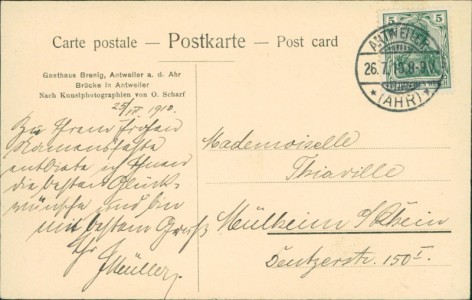 Carte postale – Postkarte – Post card
Gasthaus Brenig, Antweiler a. d. Ahr
Brücke in Antweiler
Nach Kunstphotographien von O. Scharf
5 5
ANTWEILER
26.7.10. 8-9 V.
* (AHR) *
25/VII. 1910.
Zu Ihrem frohen
Namensfeste
entbiete ich Ihnen
die besten Glück-
wünsche und bin
mit bestem Gruß
Ihr
J Müller.
Mademoiselle
Thiaville
Mülheim a/Rhein
Deutzerstr. 150 I.